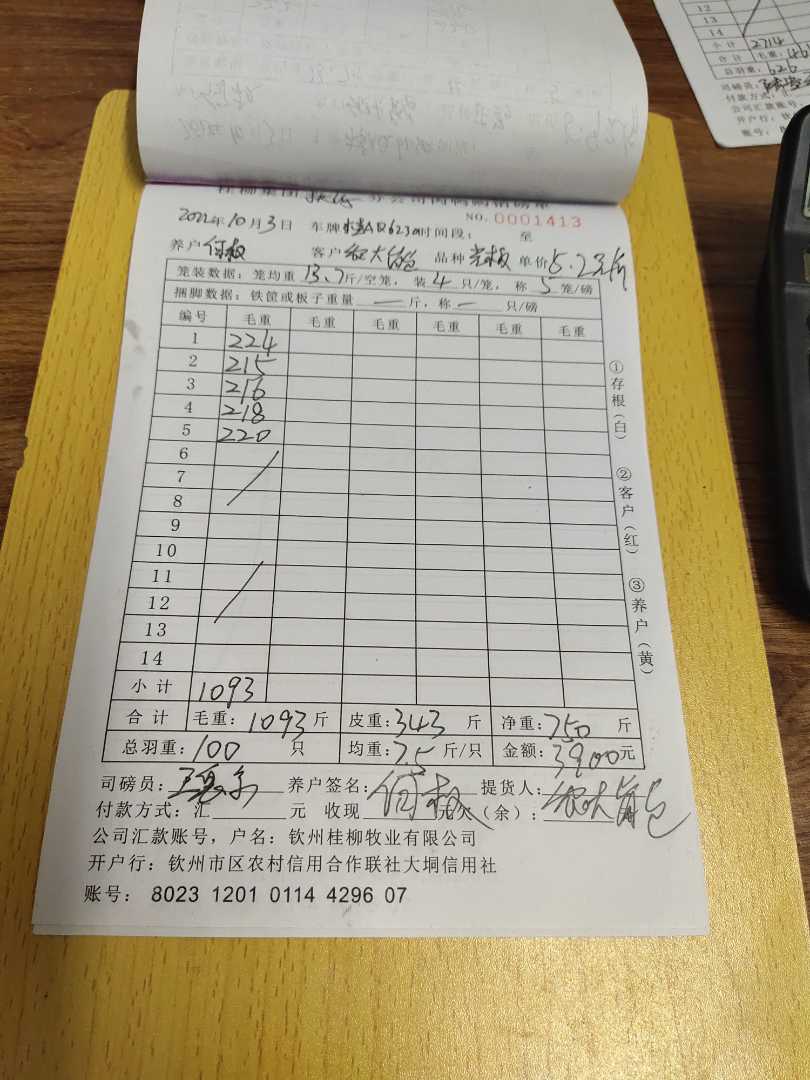 12
13
14
小计 2714
合计 毛重:
总羽重: 626
司磅员:
付款方式:
公司汇款账号,
开户行: 钦
账号:
NO. 0001413
2022年10月3日 车牌 时间段: 至
养户 何权 客户 农大 品种 单价 5.2元/斤
笼装数据: 笼均重 13.7斤/空笼, 装 4 只/笼, 称 5 笼/磅
捆脚数据: 铁筐或板子重量 — 斤, 称 — 只/磅
编号 毛重 毛重 毛重 毛重 毛重 毛重
1 224
2 215
3 216
4 218
5 220
6
7
8
9
10
11
12
13
14
小计 1093
合计 毛重: 1093斤 皮重: 343 斤 净重: 750 斤
总羽重: 100 只 均重: 7.5 斤/只 金额: 3900元
司磅员: 养户签名: 何权 提货人: 农大
付款方式: 汇 元 收现 元欠(余):
公司汇款账号, 户名: 钦州桂柳牧业有限公司
开户行: 钦州市区农村信用合作联社大垌信用社
账号: 8023 1201 0114 4296 07
①存根(白) ②客户(红) ③养户(黄)